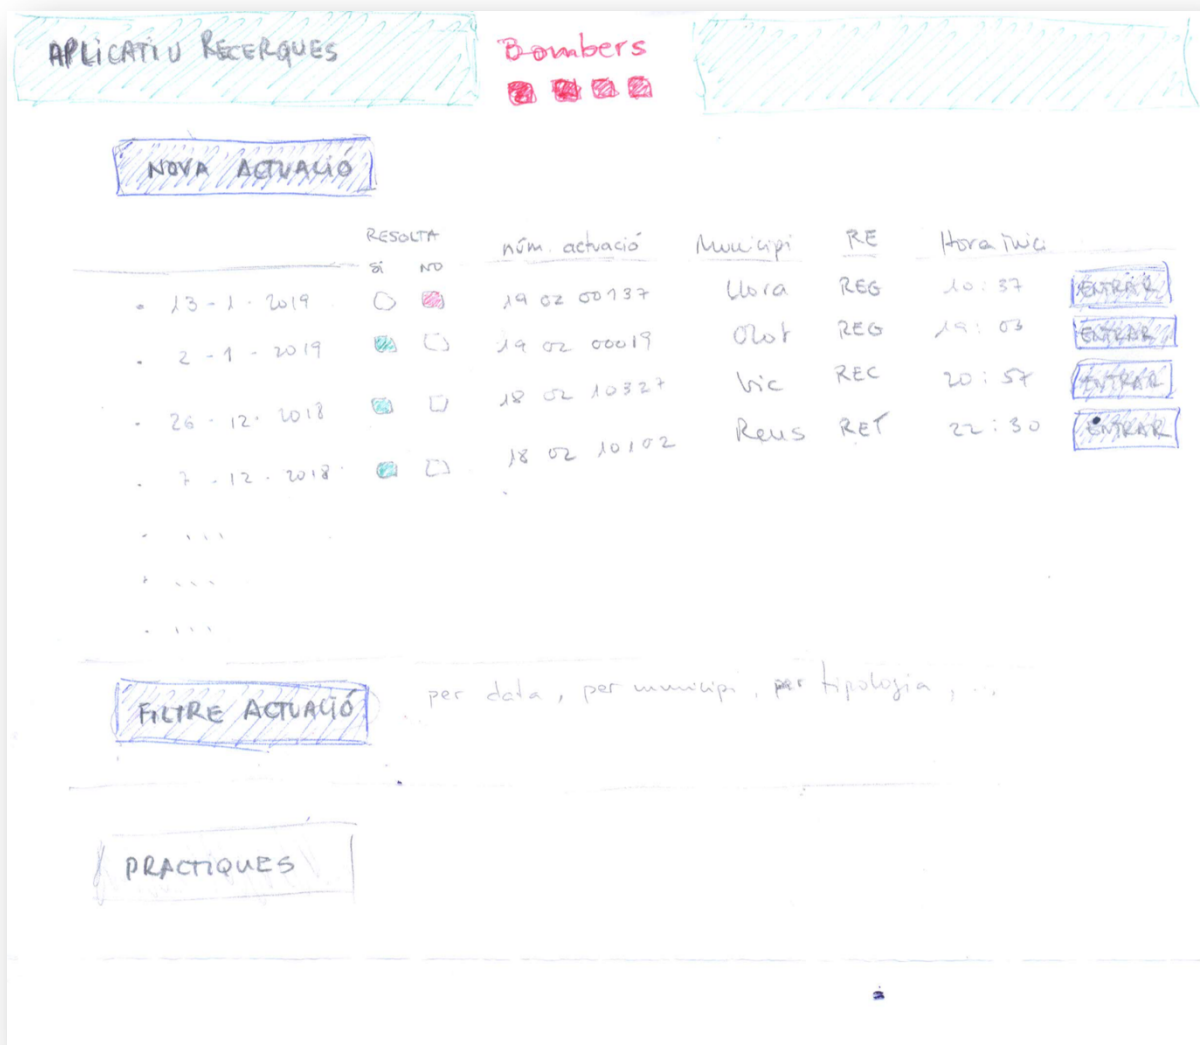 APLICATIU RECERQUES
Bombers
NOVA ACTUACIÓ
RESOLTA núm. actuació Municipi RE Hora inici
SI NO
· 13 - 1 - 2019 19 02 00137 Llora REG 10:37 ENTRAR
· 2 - 1 - 2019 19 02 00019 Olot REG 19:03 ENTRAR
· 26 - 12 - 2018 18 02 10327 Vic REC 20:57 ENTRAR
· 7 - 12 - 2018 18 02 10102 Reus RET 22:30 ENTRAR
· ...
· ...
· ...
FILTRE ACTUACIÓ per data, per municipi, per tipologia, ...
PRACTIQUES